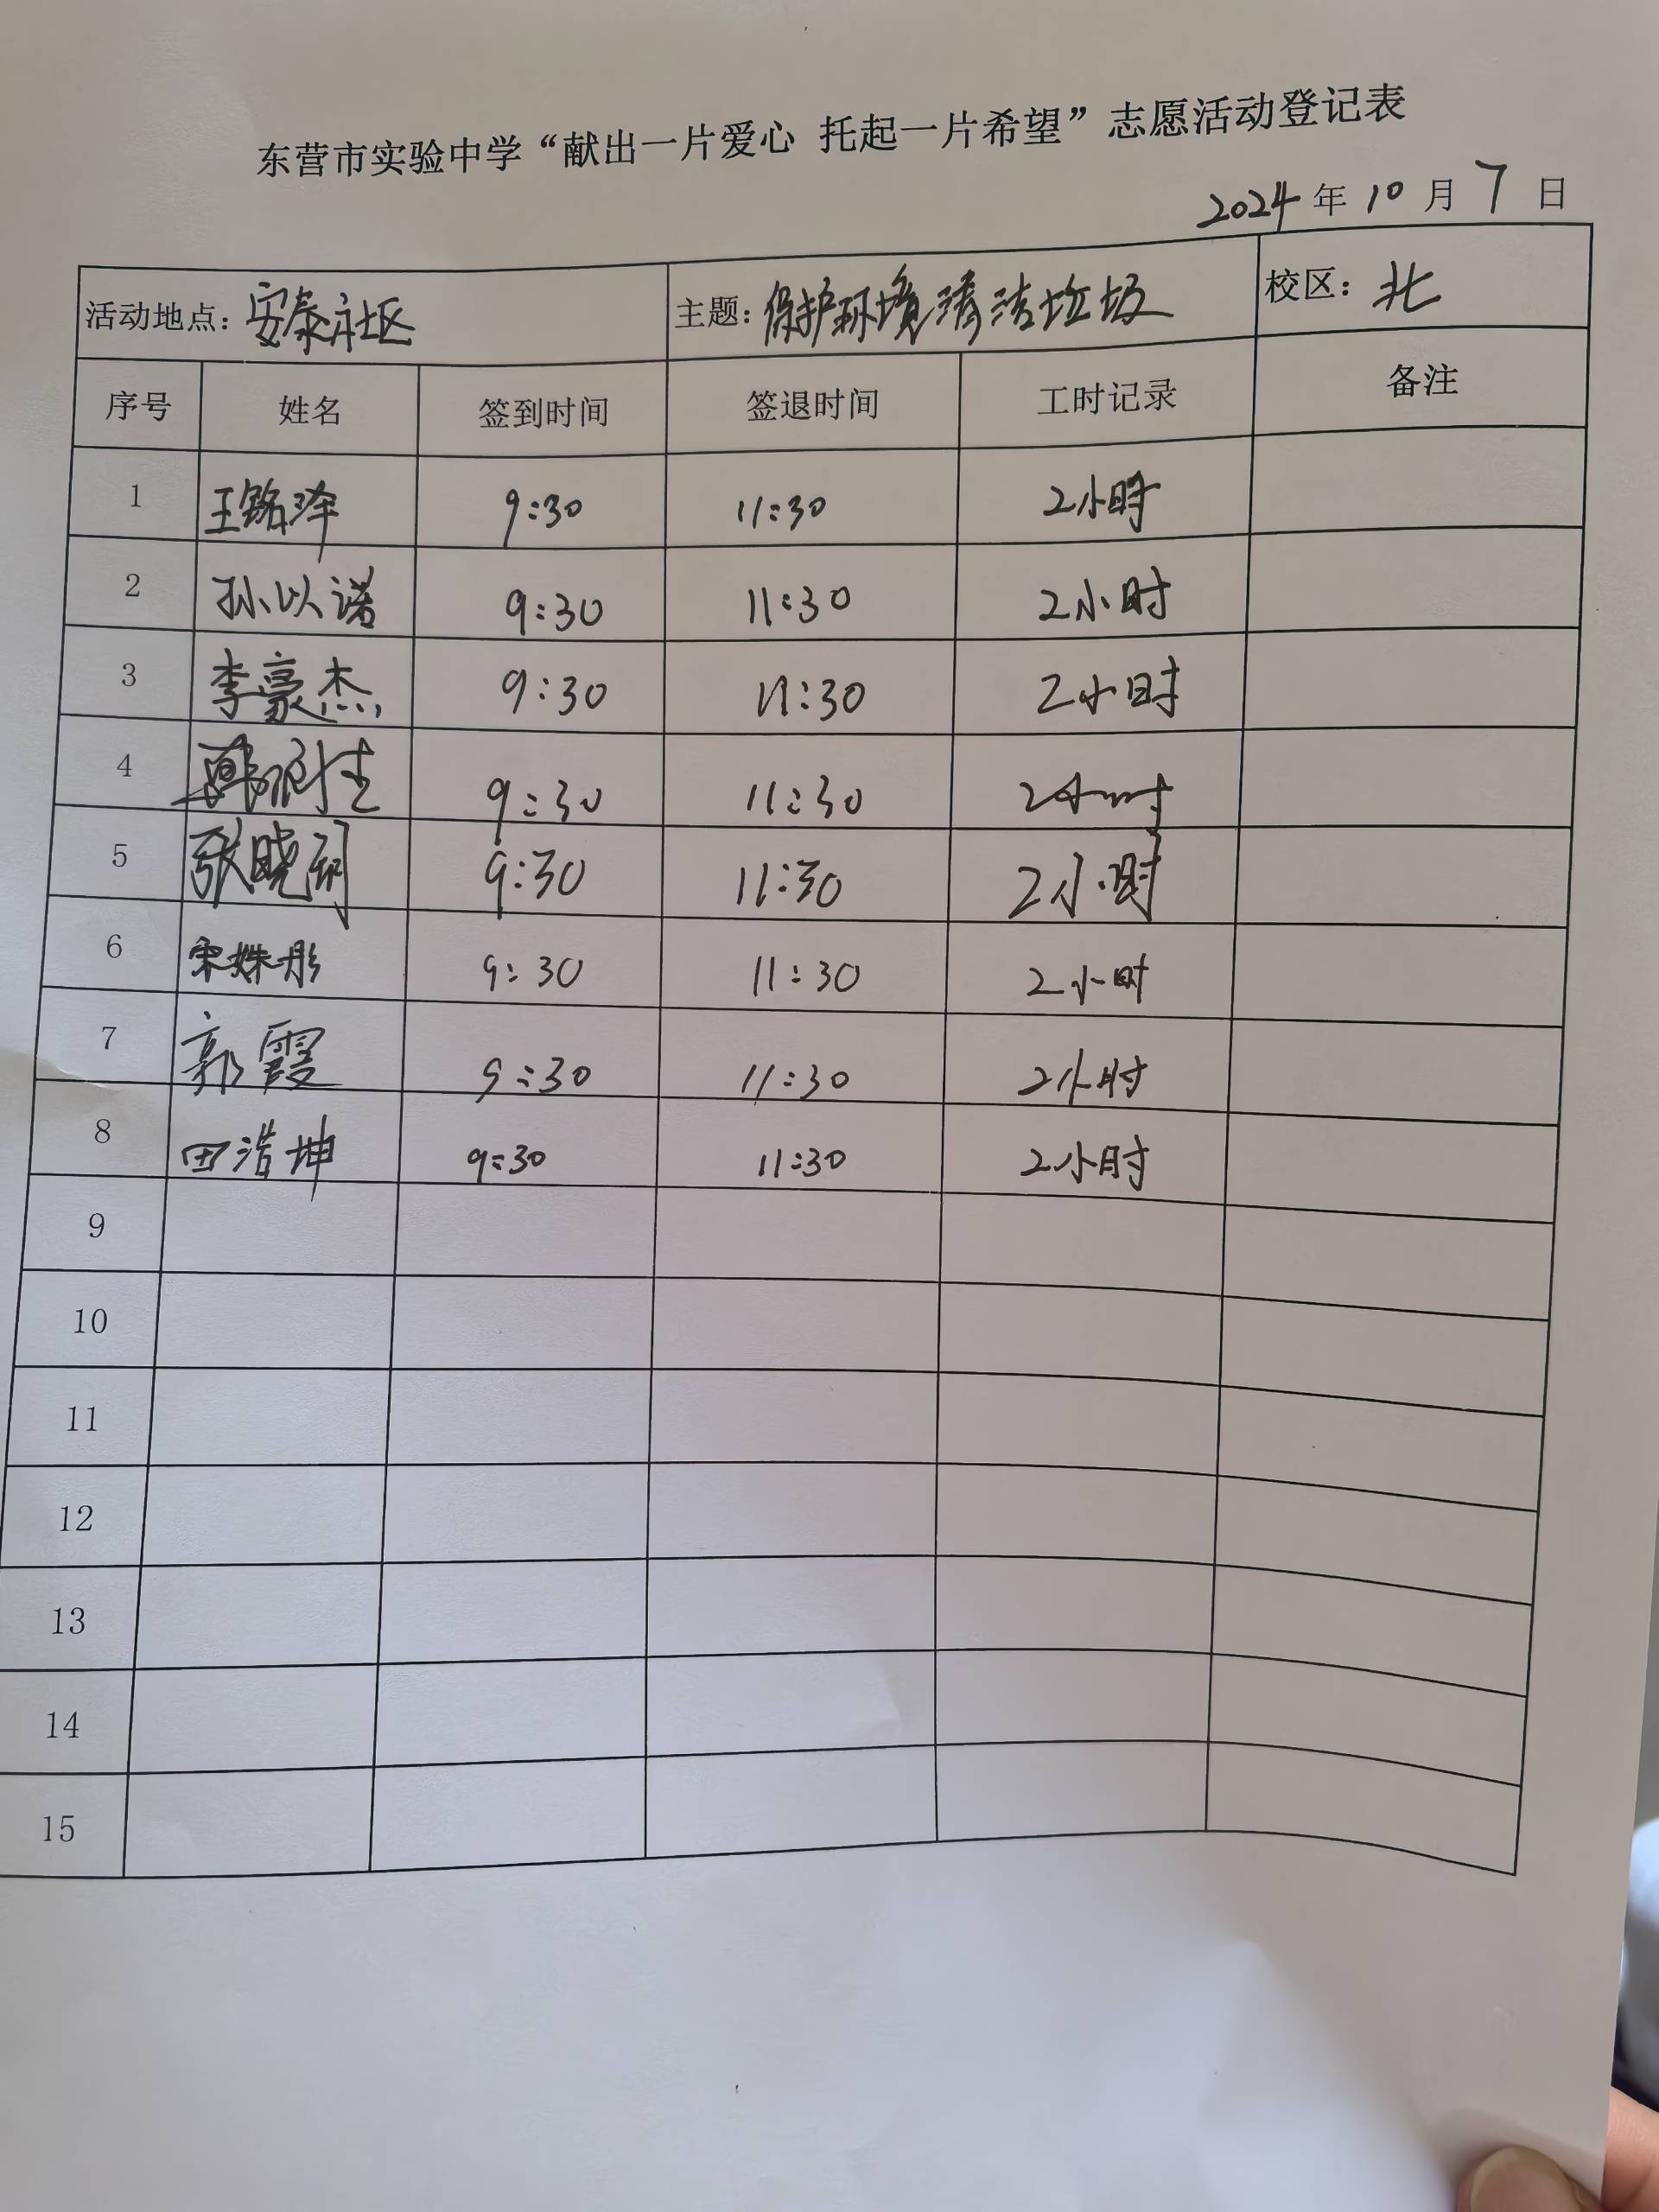 东营市实验中学“献出一片爱心 托起一片希望”志愿活动登记表
2024 年 10 月 7 日
活动地点：安泰社区 主题：保护环境清洁垃圾 校区：北
序号 姓名 签到时间 签退时间 工时记录 备注
1 王铭泽 9:30 11:30 2小时
2 孙以诺 9:30 11:30 2小时
3 李豪杰 9:30 11:30 2小时
4 韩 9:30 11:30 2小时
5 张晓 9:30 11:30 2小时
6 宋姝彤 9:30 11:30 2小时
7 郭霞 9:30 11:30 2小时
8 田浩坤 9:30 11:30 2小时
9
10
11
12
13
14
15